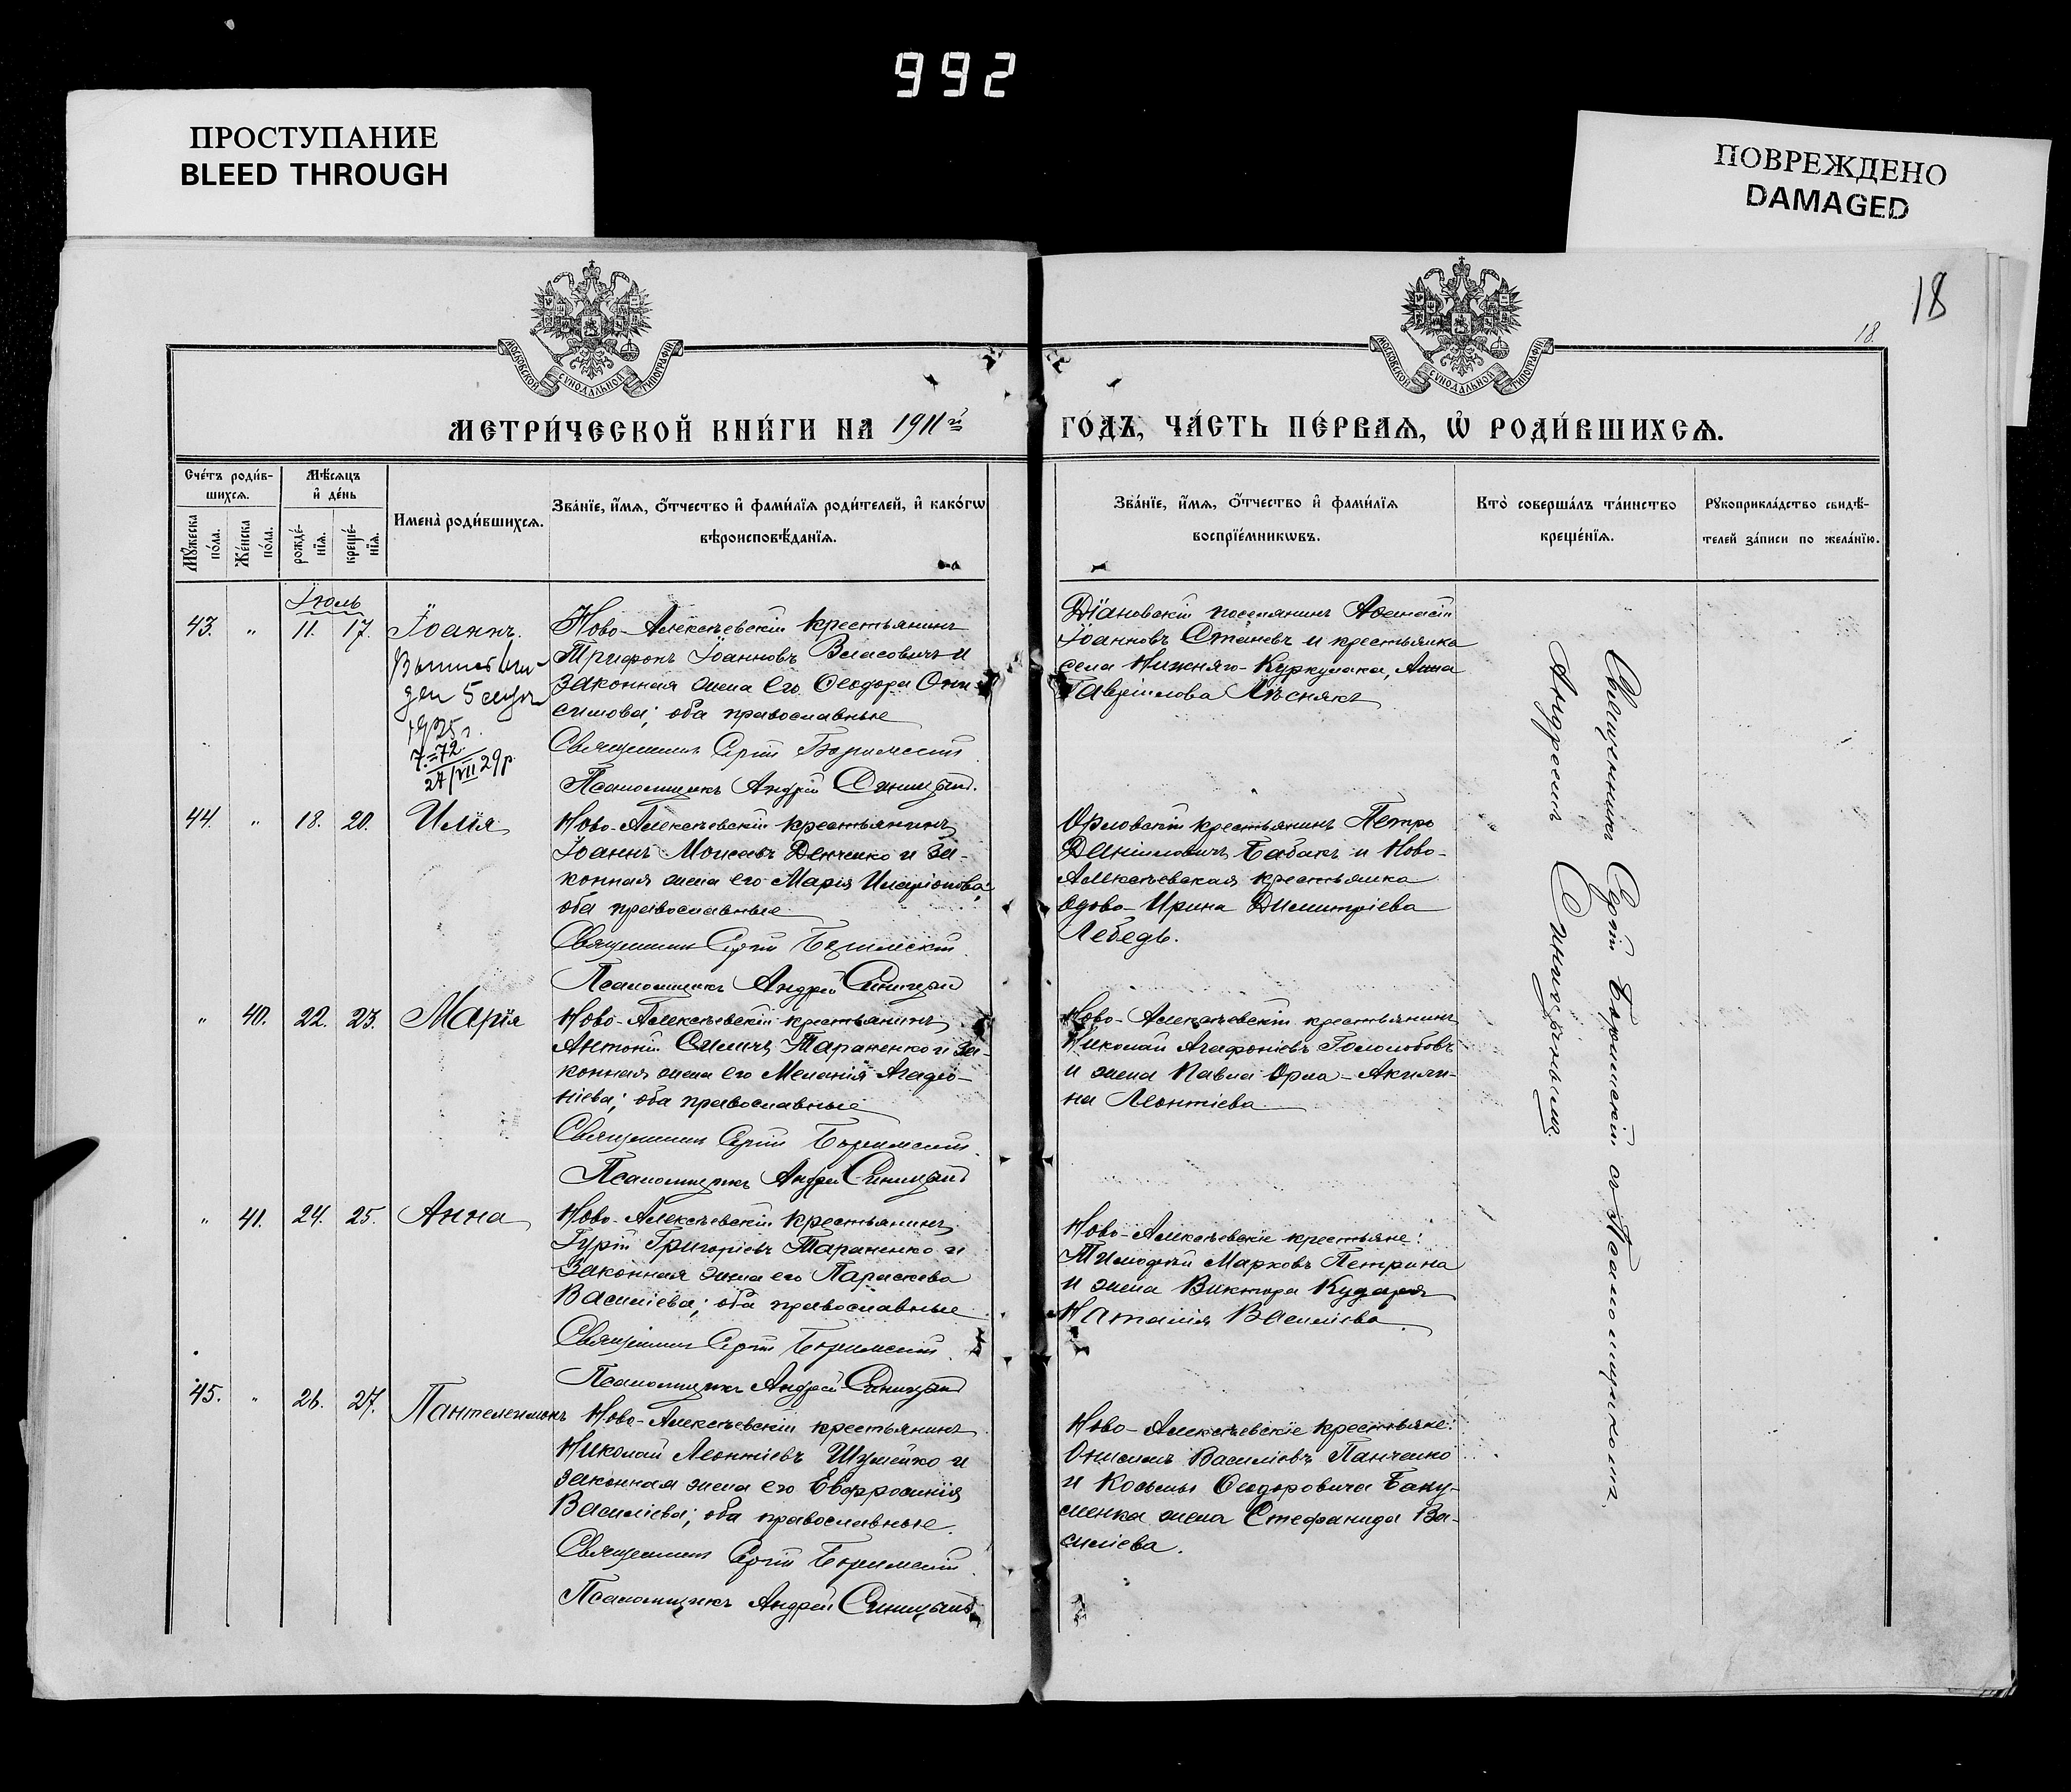 992
ПРОСТУПАНИЕ
BLEED THROUGH
ПОВРЕЖДЕНО
DAMAGED
18
18.
МОСКОВСКОЙ СѴНОДАЛЬНОЙ ТИПОГРАФІИ
МОСКОВСКОЙ СѴНОДАЛЬНОЙ ТИПОГРАФІИ
МЕТРИ́ЧЕСКОЙ КНИ́ГИ НА 1911й ГО́ДЪ, ЧА́СТЬ ПЕ́РВАѦ, Ѡ҆ РОДИ́ВШИХСѦ.
Сче́тъ роди́в-
шихсѧ.
Мꙋ́жеска по́ла.
Же́нска по́ла.
Мѣ́сѧцъ
и҆ де́нь
рожде́-
нїѧ.
креще́-
нїѧ.
Имена̀ роди́вшихсѧ.
Зва́нїе, и҆́мѧ, ѻ҆́тчество и҆ фами́лїѧ роди́телей, и҆ како́гѡ
вѣроисповѣ́данїѧ.
Зва́нїе, и҆́мѧ, ѻ҆́тчество и҆ фами́лїѧ
воспрїе́мникѡвъ.
Кто̀ соверша́лъ та́инство
креще́нїѧ.
Рꙋкоприкла́дство свидѣ́-
телей за́писи по жела́нїю.
Іюль
43. " 11. 17. Іоаннъ.
5
1925 г.
7.=72.
24/VII 29р.
Ново-Алексѣевскій крестьянинъ
Трифонъ Іоанновъ Власовичъ и
законная жена его Ѳеодора Они-
симова; оба православные
Священникъ Сергій
Псаломщикъ Андрей
Діановскій поселянинъ Аѳанасій
Іоанновъ Станевъ и крестьянка
села Нижняго-Куркулака, Анна
Гавріилова Лѣснякъ
44. " 18. 20. Илія
Ново-Алексѣевскій крестьянинъ
Іоаннъ Моисеевъ Демченко и за-
конная жена его Марія Иларіонова;
оба православные
Священникъ Сергій
Псаломщикъ Андрей
Орловскій крестьянинъ Петръ
Даніиловичъ Бабакъ и Ново-
Алексѣевская крестьянка
вдова Ирина Димитріева
Лебедь.
" 40. 22. 23. Марія
Ново-Алексѣевскій крестьянинъ
Антоній Тараненко и за-
конная жена его Меланія Агафо-
ніева; оба православные
Священникъ Сергій
Псаломщикъ Андрей
Ново-Алексѣевскій крестьянинъ
Николай Агафоніевъ Гололобовъ
и жена Павла Орла-Акили-
на Леонтіева
" 41. 24. 25. Анна
Ново-Алексѣевскій крестьянинъ
Гурій Григоріевъ Тараненко и
законная жена его Параскева
Василіева; оба православные
Священникъ Сергій
Псаломщикъ Андрей
Ново-Алексѣевскіе крестьяне:
Тимофей Марковъ Петрина
и жена Виктора
Наталія Василіева
45. " 26. 27. Пантелеимонъ
Ново-Алексѣевскій крестьянинъ
Николай Леонтіевъ Шумейко и
законная жена его Евфросинія
Василіева; оба православные.
Священникъ Сергій
Псаломщикъ Андрей
Ново-Алексѣевскіе крестьяне:
Онисимъ Василіевъ Панченко
и Косьмы Ѳеодоровича Баку-
менка жена Стефанида Ва-
силіева.
Священникъ Сергій съ Псаломщикомъ
Андреемъ